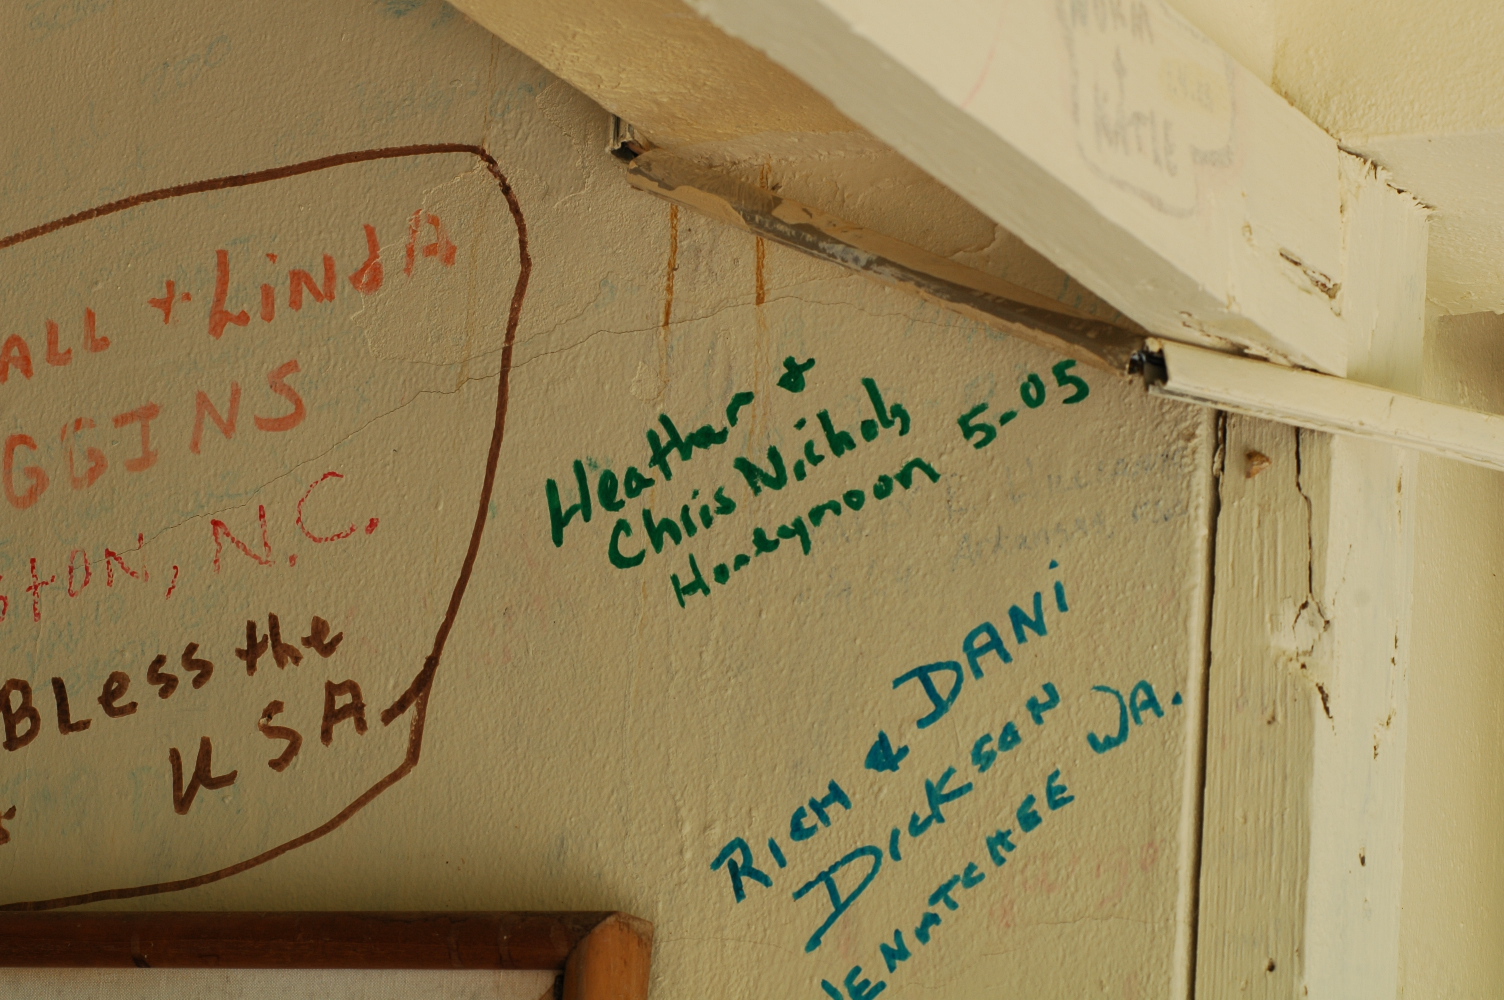 ALL + LiNdA
GGINS
StON, N.C.
BLess the
USA
Heather &
Chris Nichols
Honeymoon 5-05
RICH & DANi
DICKSON
ENATCHEE WA.